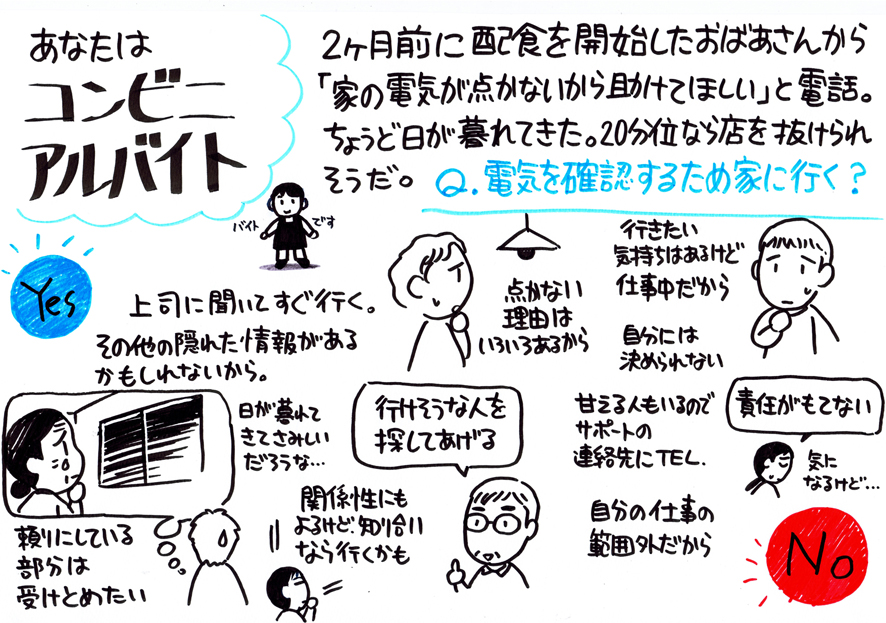 あなたは
コンビニ
アルバイト
2ヶ月前に配食を開始したおばあさんから
「家の電気が点かないから助けてほしい」と電話。
ちょうど日が暮れてきた。20分位なら店を抜けられ
そうだ。Q.電気を確認するため家に行く?
バイト です
Yes
上司に聞いてすぐ行く。
その他の隠れた情報がある
かもしれないから。
点かない
理由は
いろいろあるから
行きたい
気持ちはあるけど
仕事中だから
自分には
決められない
日が暮れて
きてさみしい
だろうな…
行けそうな人を
探してあげる
甘える人もいるので
サポートの
連絡先にTEL.
責任がもてない
気に
なるけど…
頼りにしている
部分は
受けとめたい
関係性にも
よるけど知り合い
なら行くかも
自分の仕事の
範囲外だから
No